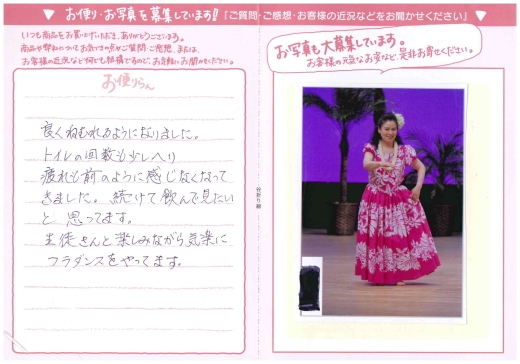 ▼ お便り・お写真を募集しています!!「ご質問・ご感想・お客様の近況などをお聞かせください」▼
いつも商品をお買いいただき、ありがとうございます。
商品や弊社についてお気づきの点やご質問・ご感想、または、
お客様の近況など何でも結構ですので、お気軽にお聞かせください。
お便りらん
良くねむれるようになりました。
トイレの回数も少しへり
疲れも前のように感じなくなって
きました。続けて飲んで見たい
と思ってます。
生徒さんと楽しみながら気楽に
フラダンスをやってます。
谷折り線
お写真も大募集しています。
お客様の元気なお姿など、是非お寄せください。